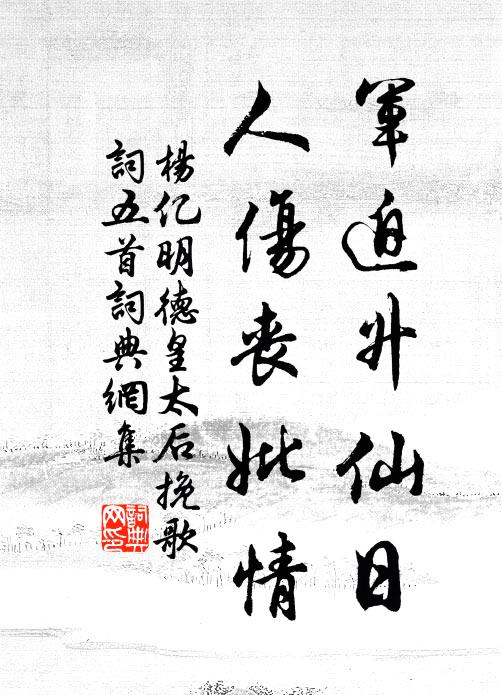 軍迫升仙日
人傷喪妣情
楊亿明德皇太后挽歌
詞五首詞典網集
詞典
网印